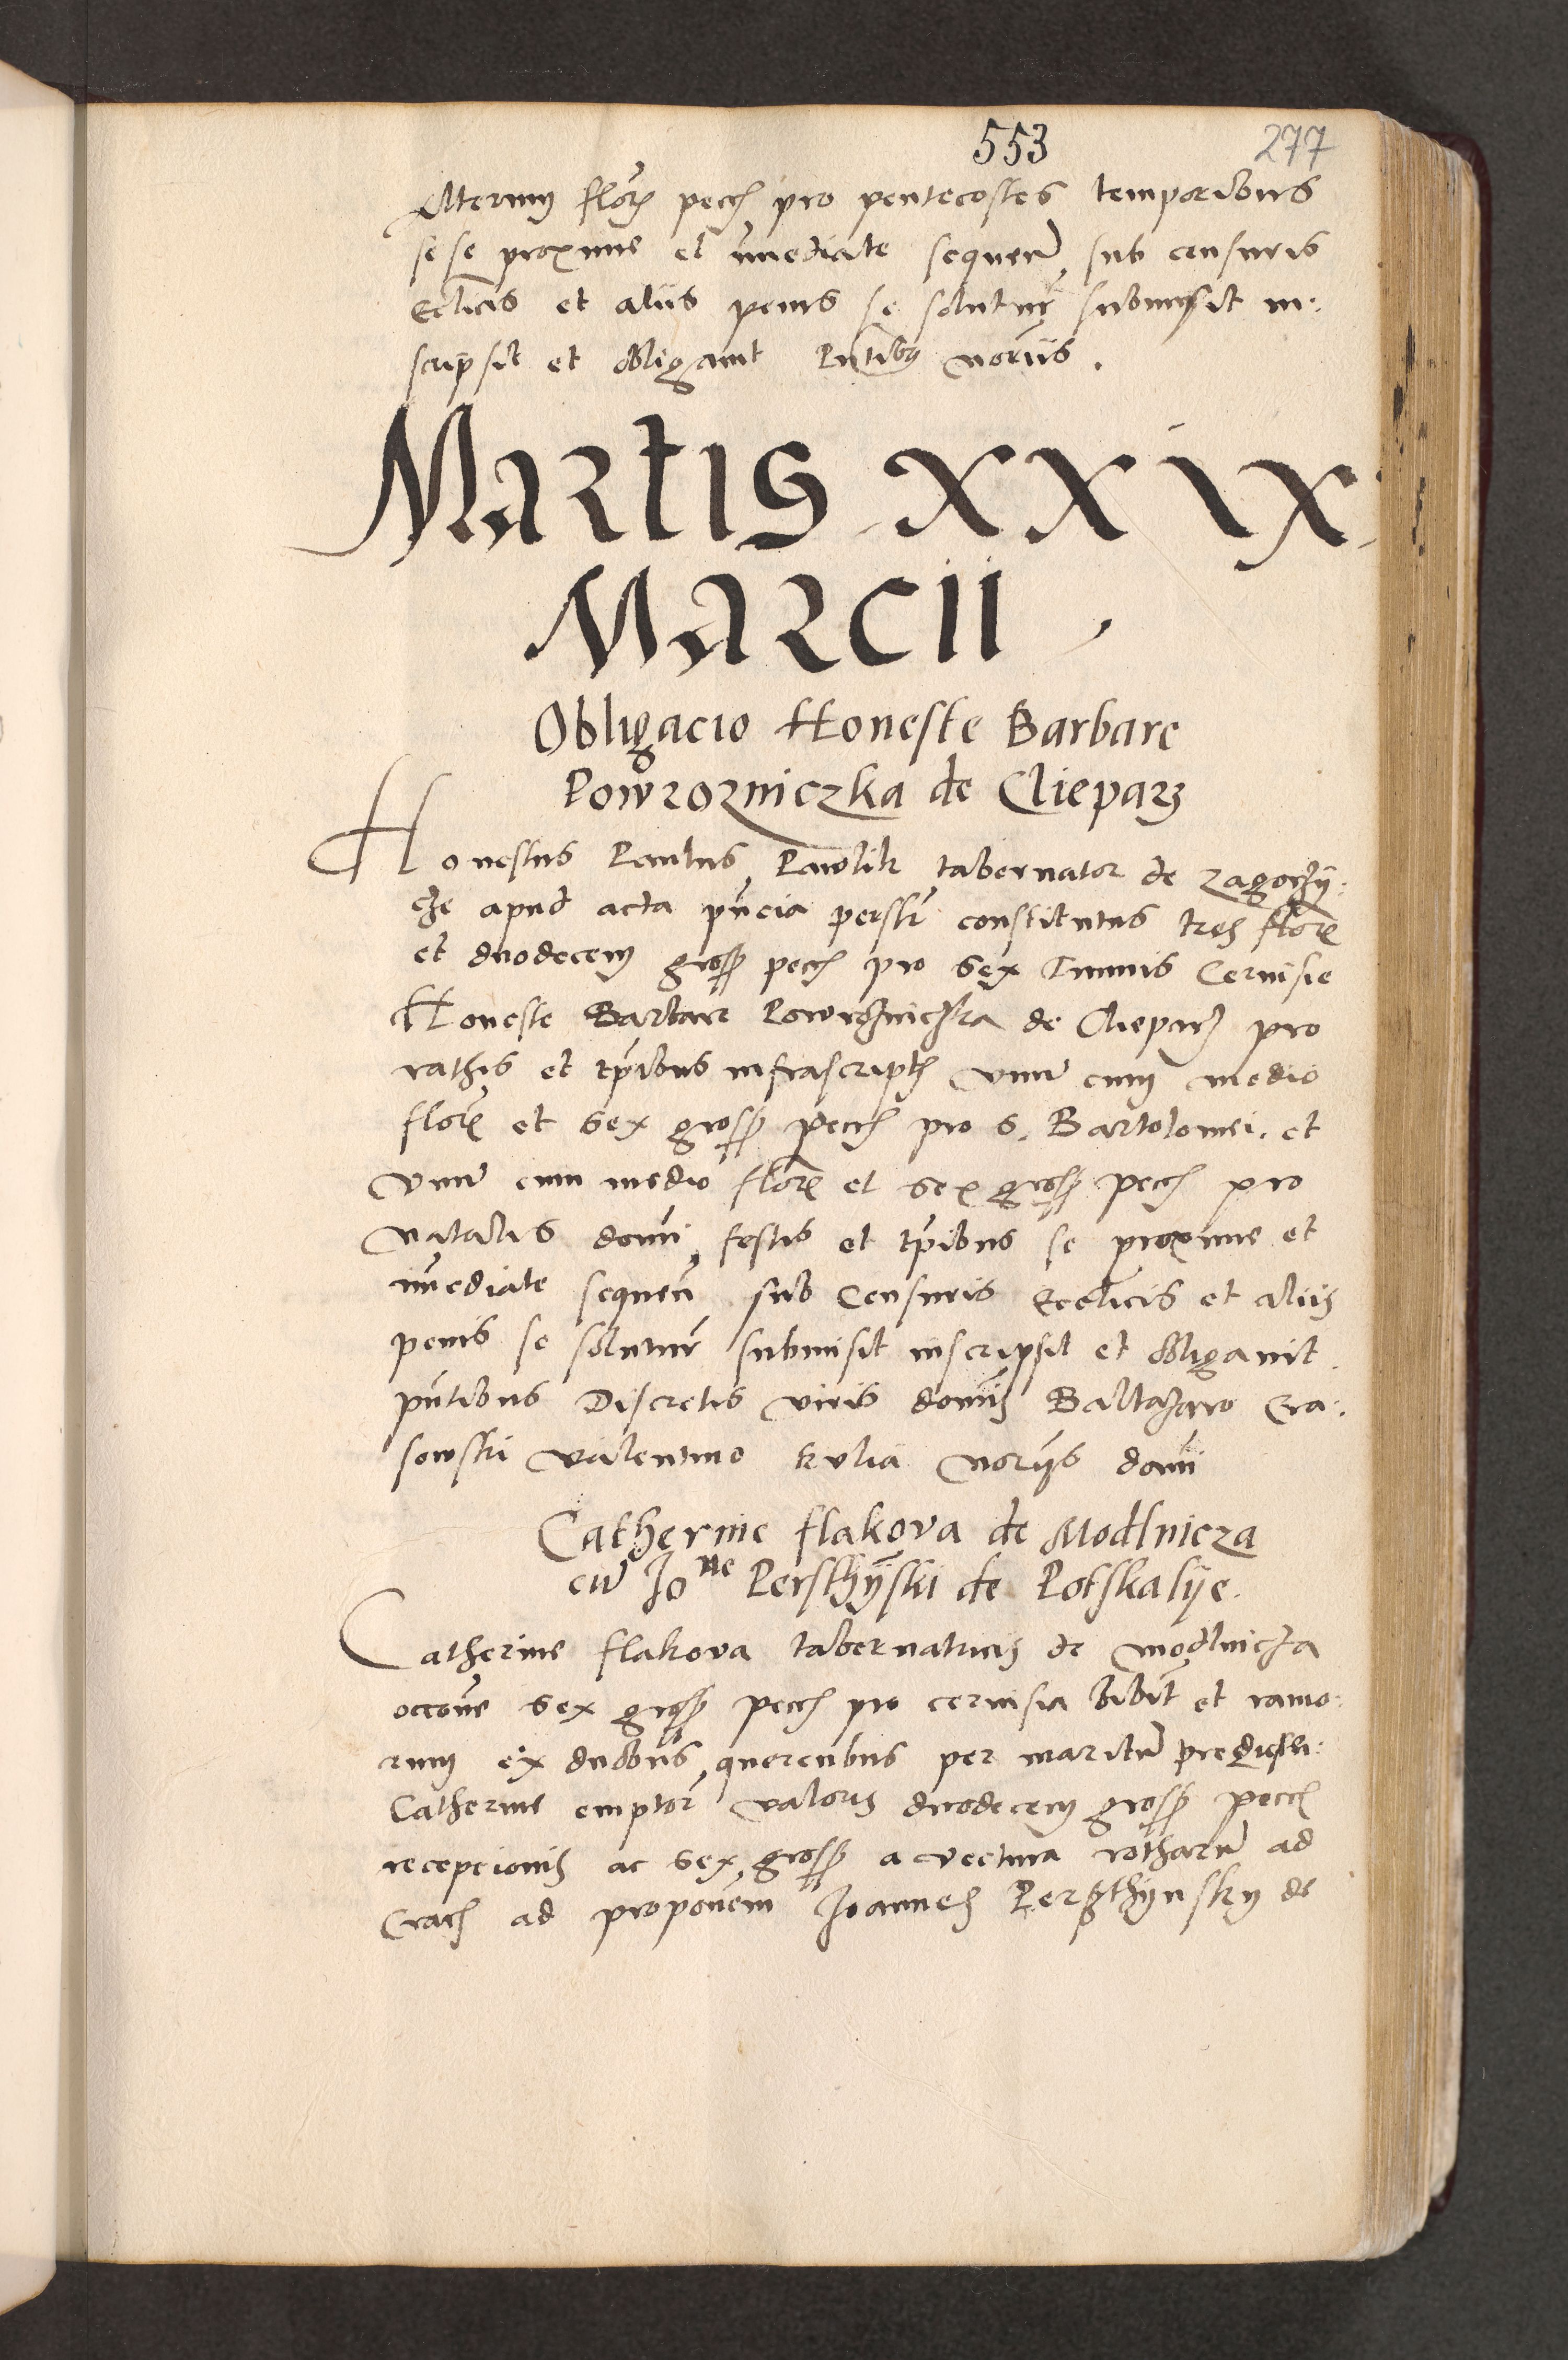 553 277
Alterum flor pecch pro pentecostes temporibus
sese proxime et immediate sequen sub censuris
Ecclicis et aliis penis se solutur submisit in:
scripsit et obligavit Pntibus noriis.
Martis XXIX
Marcii
Obligacio Honeste Barbare
Powrozniczka de Clieparz
Honestus Paulus Pawlik tabernator de zagorzy:
cze apud acta pncia personlr constitutus tres flor
et duodecem gross pecch pro sex Tunnis Cervisie
Honeste Barbare Powrozniczka de Clieparz pro
rathis et tpibus infrascripth unu cum medio
flor et sex gross pecch pro s. Bartolomei. et
unu cum medio flor et sex gross pecch pro
Natalis domi festis et tpibus se proxime et
immediate sequen sub Censuris Ecclicis et aliis
penis se solutur submisit inscripsit et obligavit.
pntibus Discretis viris domis Baltazaro Cra:
sowski Valentino Kulia Noriis domi
Catherine flakova de Modlnicza
cu Jone Persthynski de Potskalije.
Catherine flakova tabernatricis de modlnicza
occone sex gross pecch pro cervisia bibit et ramo:
rum ex duobus quercubus per maritu predicte
Catherine emptor valoris duodecem gross pecch
recepcionis ac sex gross a vectura rotharu ad
Crach ad proponem Joannes Persthynsky de